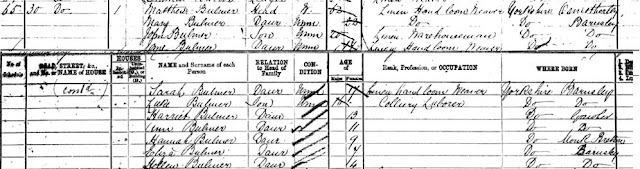 65 30 Do 1 Matthew Bulmer Head W. Linen Hand Loom Weaver Yorkshire Osmotherly
Mary Bulmer Daur Unm Do Do Barnsley
John Bulmer Son Unm Linen Warehouseman Do Do
Jane Bulmer Daur Unm Linen Hand Loom Weaver Do Do
No. of Schedule
ROAD, STREET, &c., and No. or NAME of HOUSE
HOUSES
NAME and Surname of each Person
RELATION to Head of Family
CONDITION
AGE of
Males Females
Rank, Profession, or OCCUPATION
WHERE BORN
Sarah Bulmer Daur Unm Linen hand loom Weaver Yorkshire Barnsley
Luke Bulmer Son Unm Colliery Laborer Do Do
Harriet Bulmer Daur 13 Do
Ann Bulmer Daur 11 Do Do
Hannah Bulmer Daur 9 Do Monk Bretton
Eliza Bulmer Daur 7 Do Barnsley
Bulmer Daur 4 Do Do